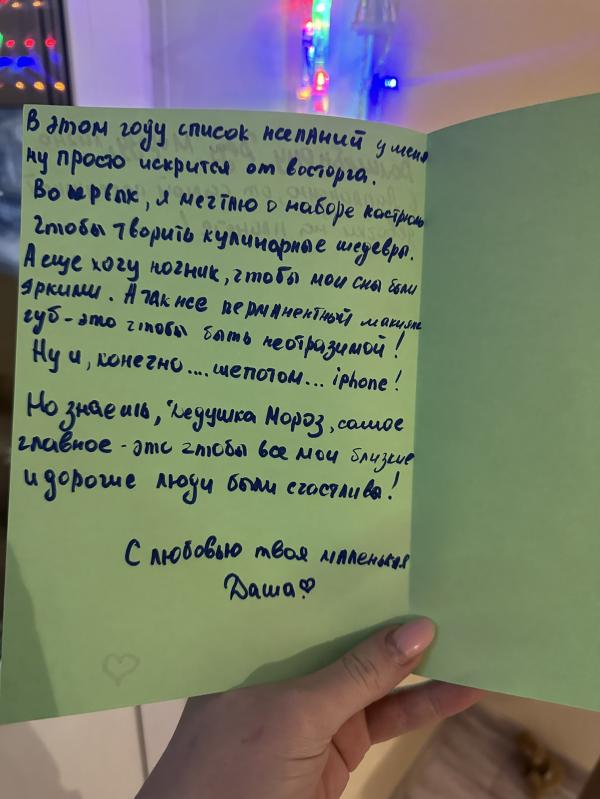 В этом году список желаний у меня
ну просто искрится от восторга.
Во первых, я мечтаю о наборе кастрюль
чтобы творить кулинарные шедевры.
А еще хочу ночник, чтобы мои сны были
яркими. А так же перманентный макияж
губ - это чтобы быть неотразимой!
Ну и, конечно.... шепотом... iphone!
Но знаешь, Дедушка Мороз, самое
главное - это чтобы все мои близкие
и дорогие люди были счастливы!
С любовью твоя маленькая
Даша♡